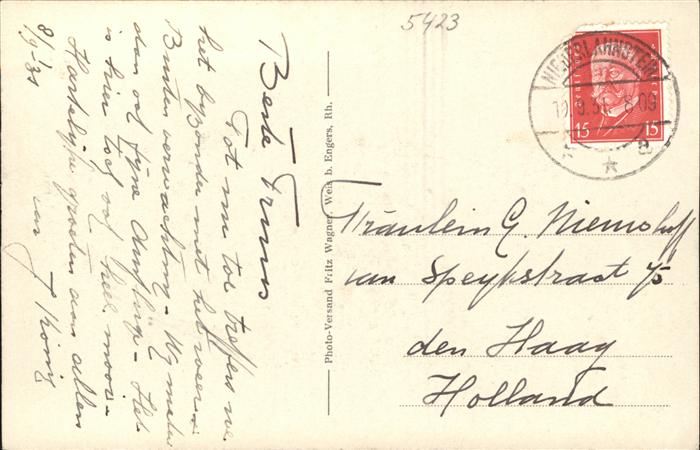 5423
NIEDERLAHNSTEIN
10.9.31. 8-09
a
15 15
Beste Truus
Tot nu toe treffen we
het byzonder met het weer.
Buiten verwachting. Wy maken
dan ook fyne
is hier toch ook heel mooi.
Hartelyke groeten aan allen
van
8/9-31
Photo-Versand Fritz Wagner, Weis b. Engers, Rh.
Fräulein G. Niemshoff
van Speykstraat 75
den Haag
Holland